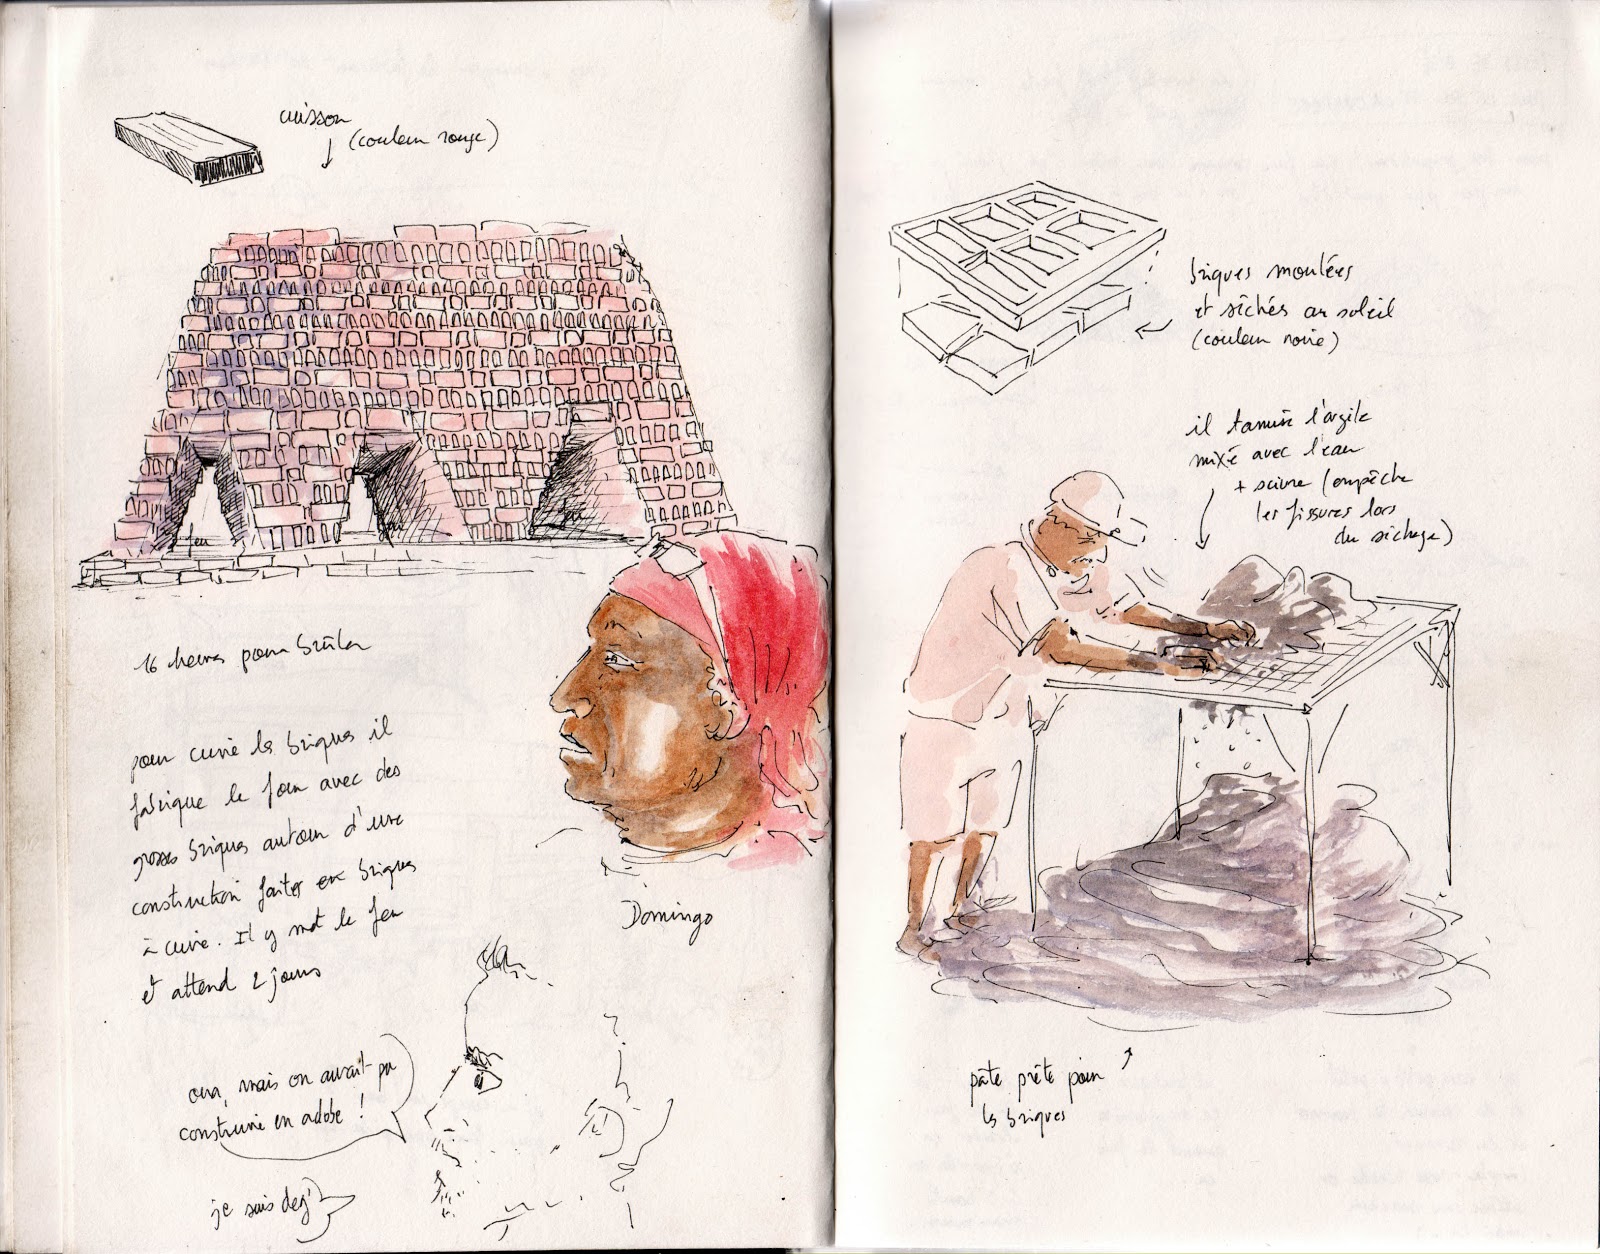 cuisson
(couleur rouge)
feu
feu
feu
16 heures pour brûler
pour cuire les briques il
fabrique le four avec des
grosses briques autour d'une
construction faites en briques
à cuire. Il y met le feu
et attend 2 jours
Domingo
oua, mais on aurait pu
construire en adobe !
je suis deg'
briques moulées
et séchés au soleil
(couleur noire)
il tamise l'argile
mixé avec l'eau
+ sciure (empêche
les fissures lors
du séchage)
pâte prête pour
les briques